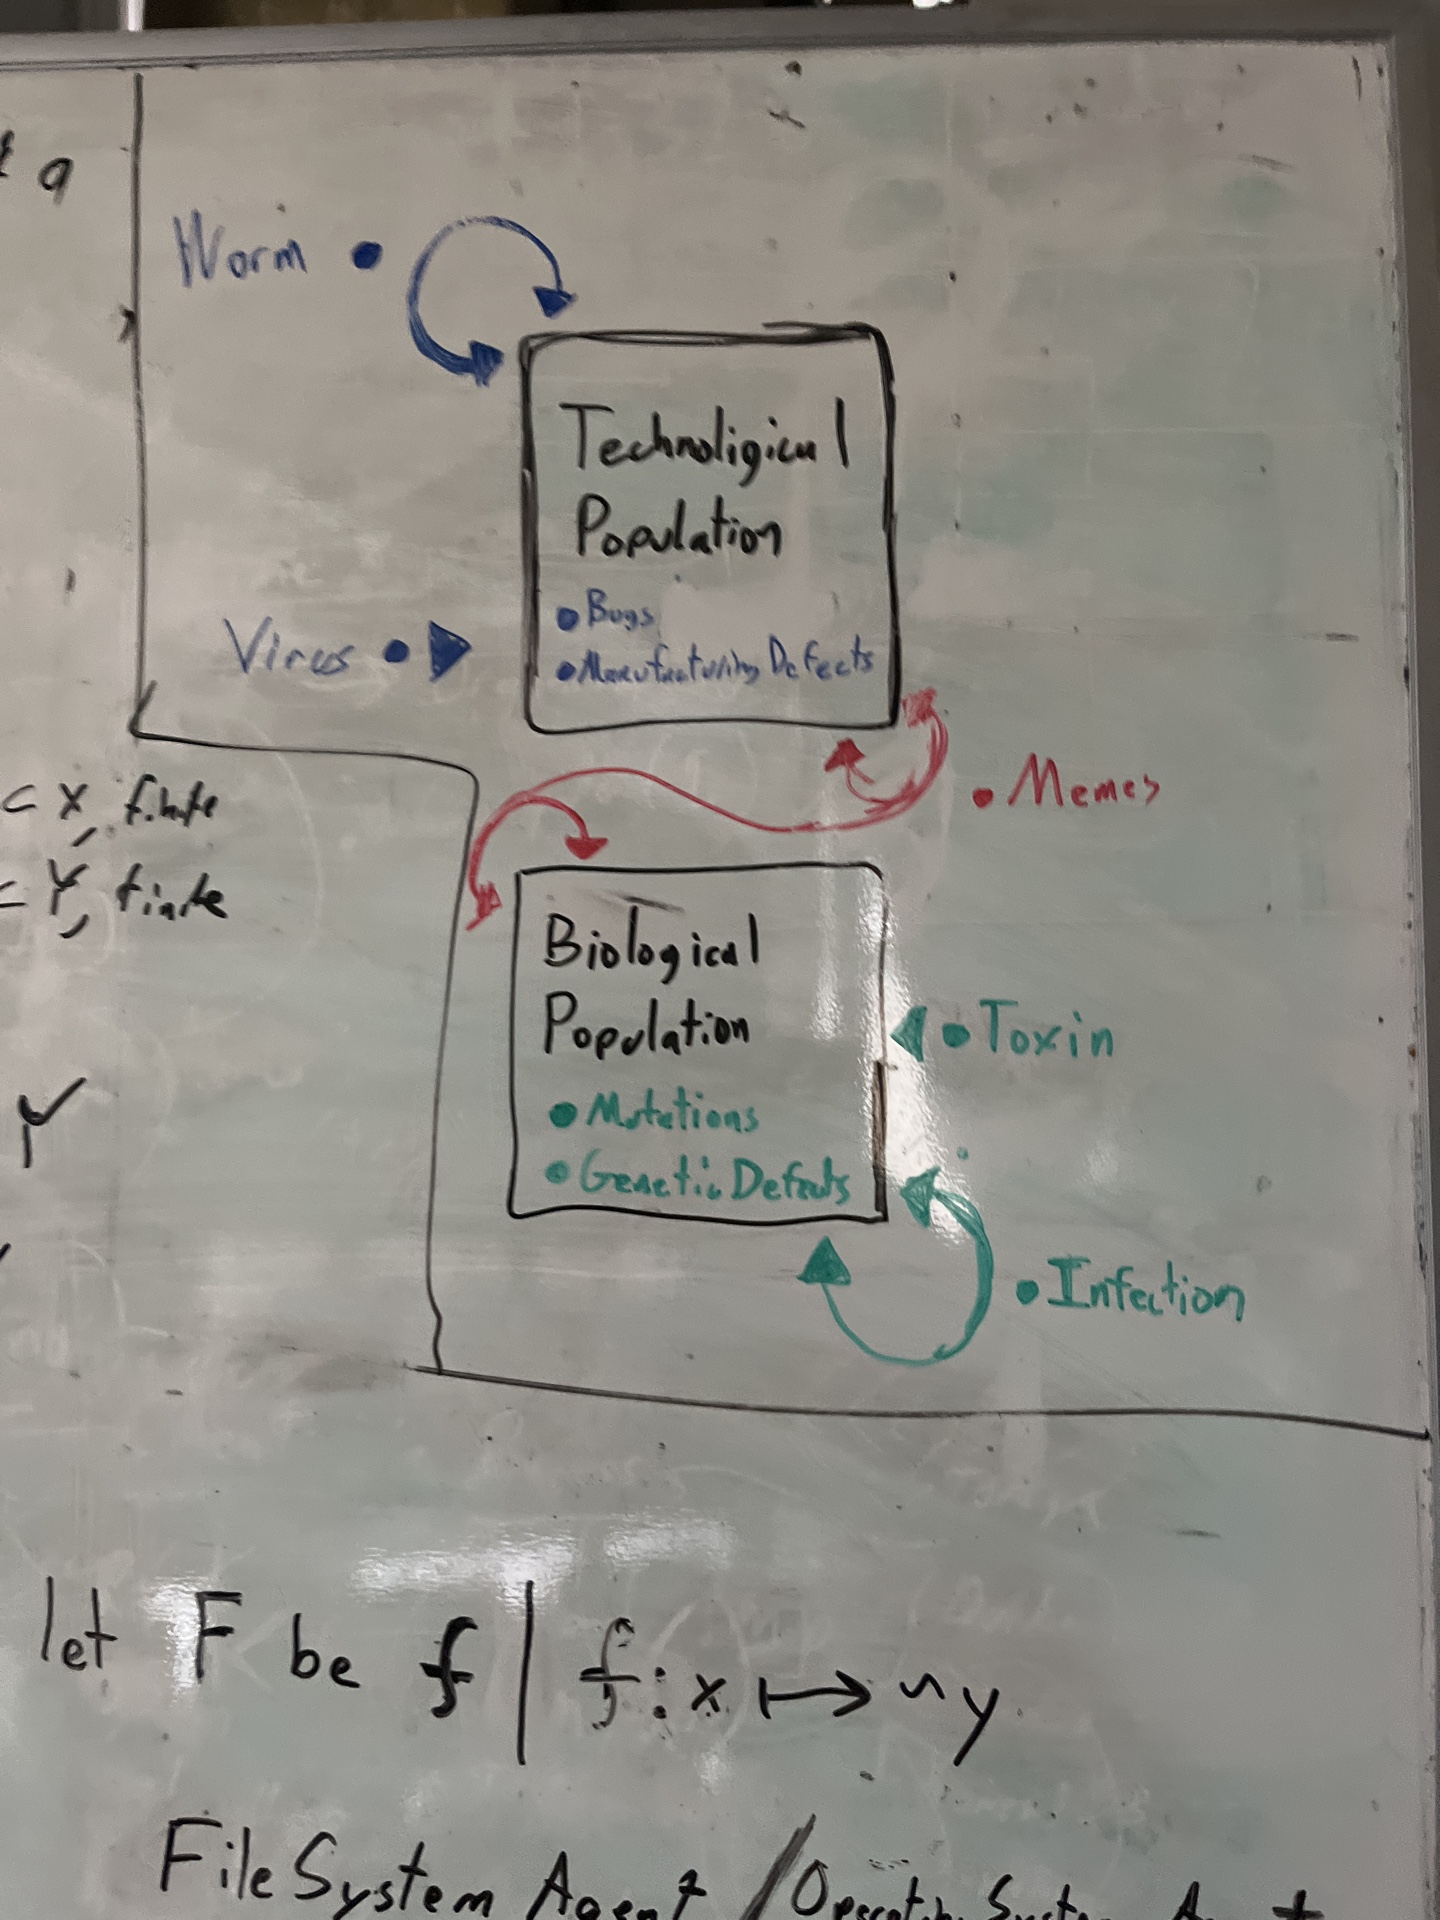 a
Worm
Technoligical
Population
• Bugs
• Manufacturing Defects
Virus
• Memes
⊂ X, finite
Y, finite
Biological
Population
• Mutations
• Genetic Defects
• Toxin
• Infection
let F be f | f : x ↦ y
FileSystem Agent / Operating System Agent